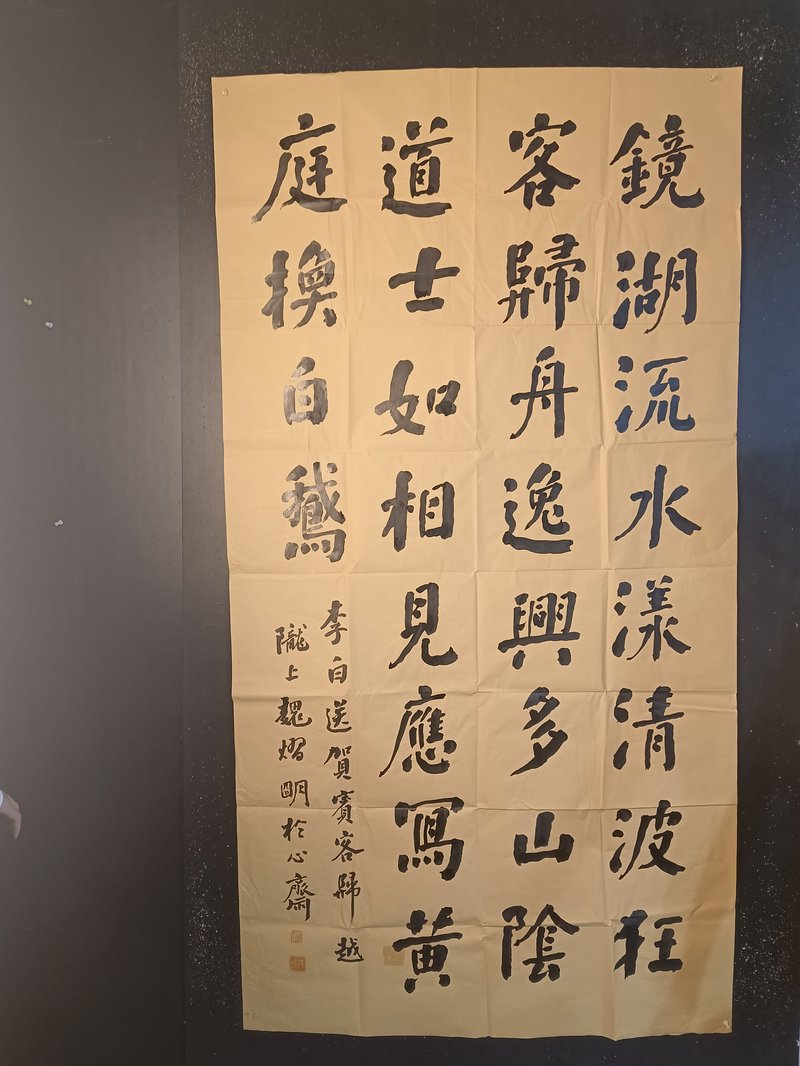 鏡湖流水漾清波狂
客歸舟逸興多山陰
道士如相見應寫黃
庭換白鵞
李白送賀賓客歸越
隴上魏熠明於心齋